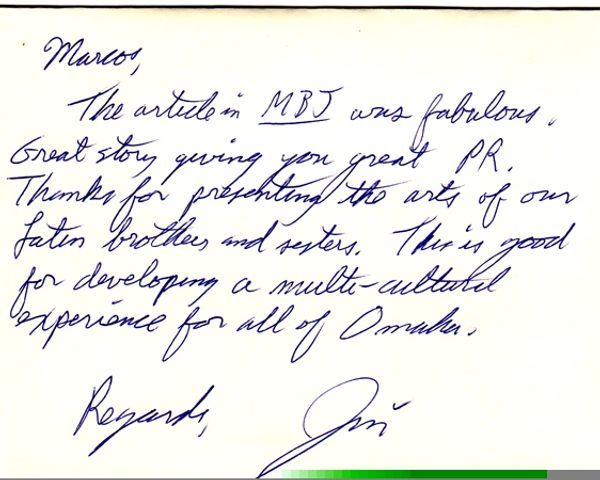 Marcos,
The article in MBJ was fabulous.
Great story giving you great PR.
Thanks for presenting the arts of our
Latin brothers and sisters. This is good
for developing a multi-cultural
experience for all of Omaha.
Regards, Jim